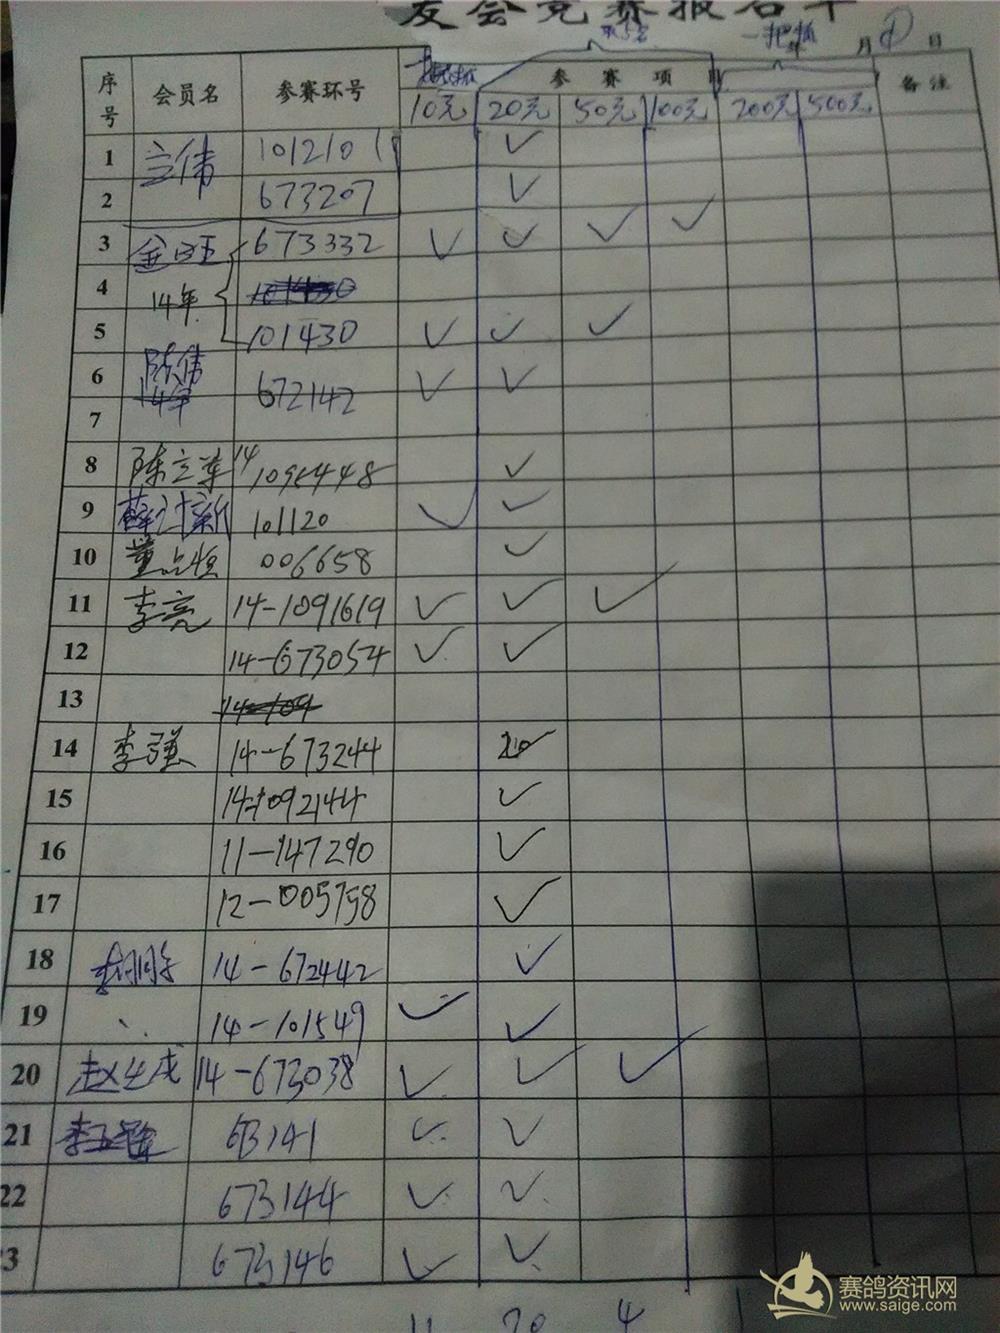 友会竞赛报名单
前5名 一把抓 月 ① 日
序号 会员名 参赛环号 参赛项 备注
10元 20元 50元 100元 200元 500元
1 立伟 101210 ✓
2 673207 ✓
3 金旺 673332 ✓ ✓ ✓ ✓
4 14年
5 101430 ✓ ✓ ✓
6 陈伟 14年 672142 ✓ ✓
7
8 陈立军 14 ✓
9 101120 ✓ ✓
10 006658 ✓
11 李亮 14-1091619 ✓ ✓ ✓
12 14-673054 ✓ ✓
13 14-109
14 李强 14-673244 20
15 14-1092144 ✓
16 11-147290 ✓
17 12-005758 ✓
18 14-672442 ✓
19 14-101549 ✓ ✓
20 14-673038 ✓ ✓ ✓
21 673141 ✓ ✓
22 673144 ✓ ✓
3 673146 ✓ ✓
11 20 4
赛鸽资讯网
www.saige.com